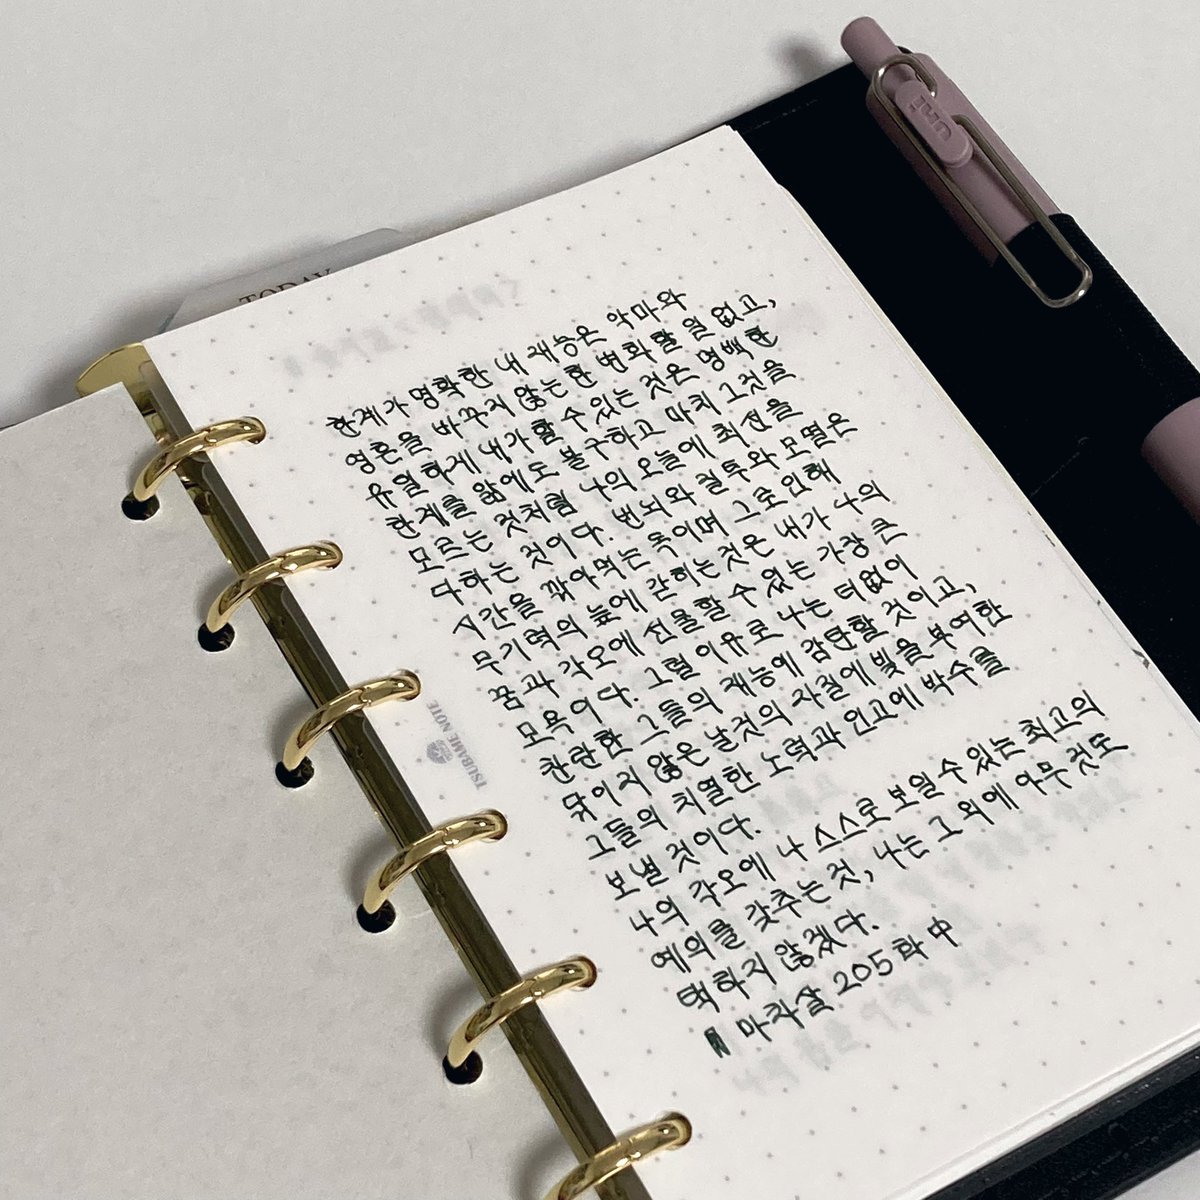 TODAY
uni
한계가 명확한 내 재능은 악마와
영혼을 바꾸지 않는한 변화할 일 없고,
유일하게 내가 할 수 있는 것은 명백한
한계를 앎에도 불구하고 마치 그것을
모르는 것처럼 나의 오늘에 최선을
다하는 것이다. 번뇌와 질투와 모멸은
시간을 깎아먹는 독이며 그로인해
무기력의 늪에 갇히는것은 내가 나의
꿈과 각오에 선물할 수 있는 가장 큰
모욕이다. 그럴 이유로 나는 더없이
찬란한 그들의 재능에 감탄할 것이고,
닦이지 않은 날것의 자질에 빛을 부여한
그들의 치열한 노력과 인고에 박수를
보낼 것이다.
나의 각오에 나 스스로 보일수 있는 최고의
예의를 갖추는 것, 나는 그 외에 아무 것도
택하지 않겠다.
마지살 205화 中
TSUBAME NOTE